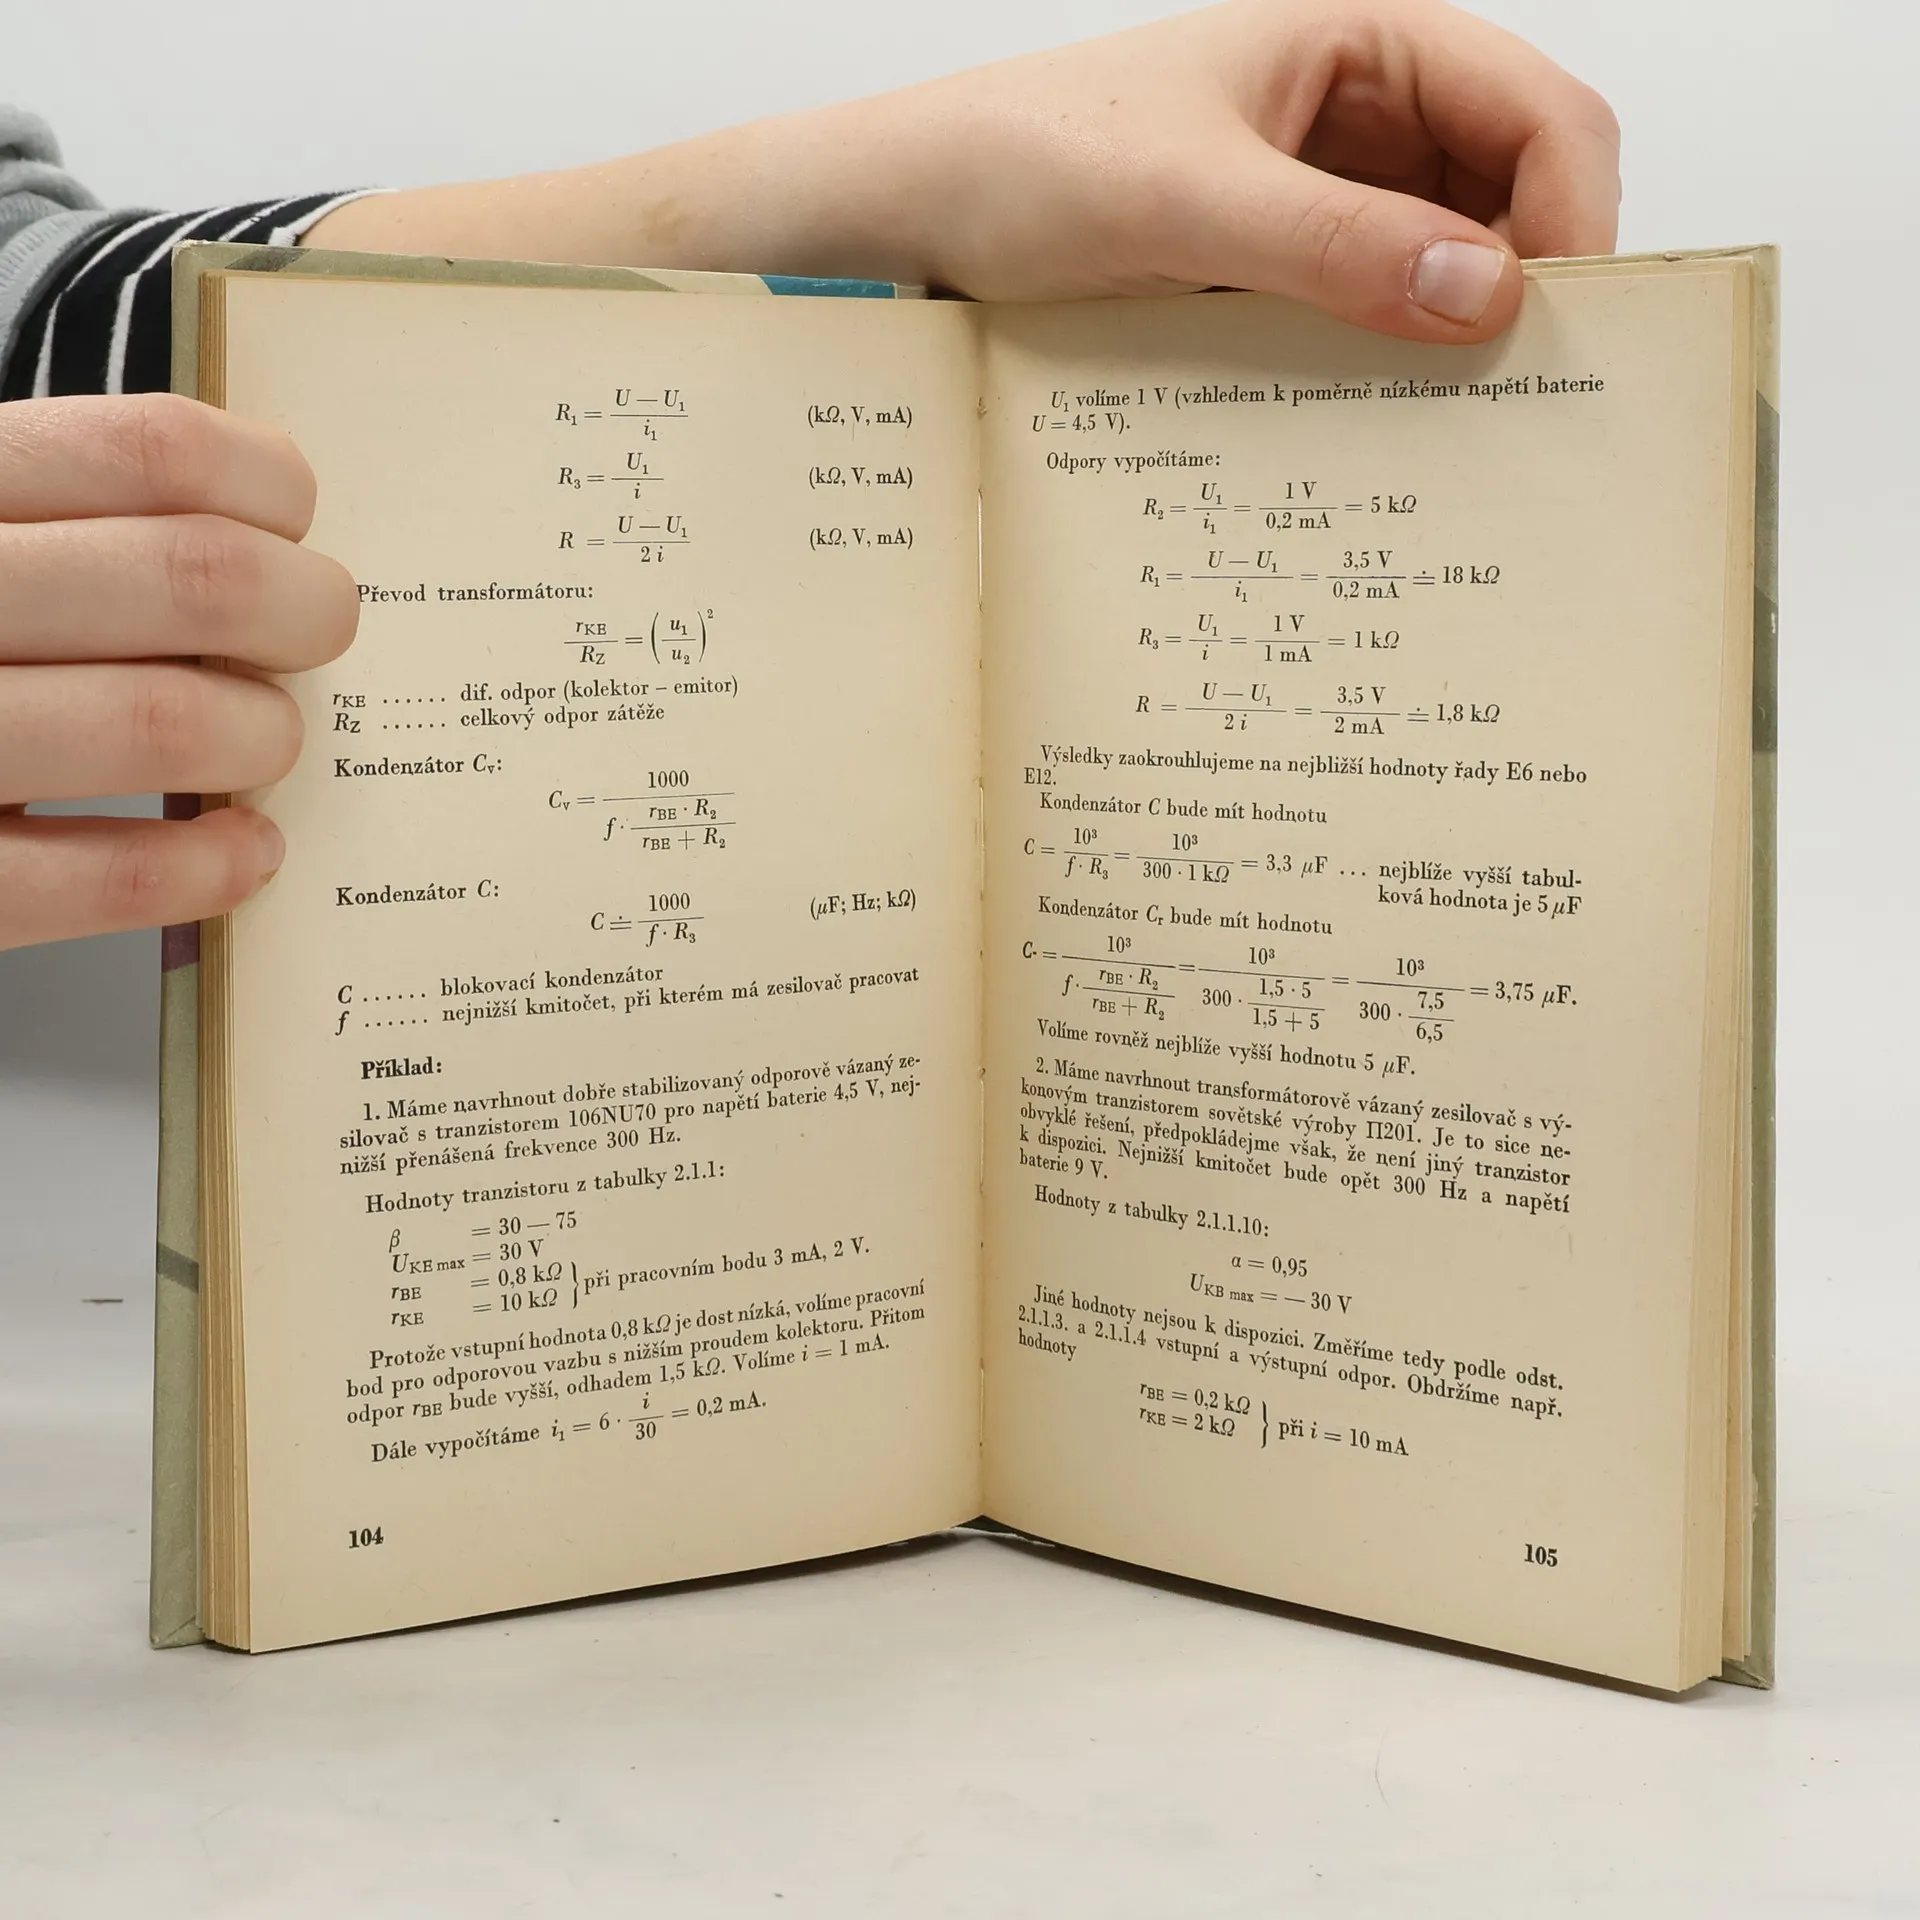 R₁ = (U — U₁) / i₁ (kΩ, V, mA)
R₃ = U₁ / i (kΩ, V, mA)
R = (U — U₁) / 2 i (kΩ, V, mA)
Převod transformátoru:
r_KE / R_Z = (u₁ / u₂)²
r_KE ...... dif. odpor (kolektor – emitor)
R_Z ...... celkový odpor zátěže
Kondenzátor Cᵥ:
Cᵥ = 1000 / (f · (r_BE · R₂) / (r_BE + R₂))
Kondenzátor C:
C ≐ 1000 / (f · R₃) (μF; Hz; kΩ)
C ...... blokovací kondenzátor
f ...... nejnižší kmitočet, při kterém má zesilovač pracovat
Příklad:
1. Máme navrhnout dobře stabilizovaný odporově vázaný ze-
silovač s tranzistorem 106NU70 pro napětí baterie 4,5 V, nej-
nižší přenášená frekvence 300 Hz.
Hodnoty tranzistoru z tabulky 2.1.1:
β = 30 — 75
U_KE max = 30 V
r_BE = 0,8 kΩ } při pracovním bodu 3 mA, 2 V.
r_KE = 10 kΩ
Protože vstupní hodnota 0,8 kΩ je dost nízká, volíme pracovní
bod pro odporovou vazbu s nižším proudem kolektoru. Přitom
odpor r_BE bude vyšší, odhadem 1,5 kΩ. Volíme i = 1 mA.
Dále vypočítáme i₁ = 6 · i / 30 = 0,2 mA.
104
U₁ volíme 1 V (vzhledem k poměrně nízkému napětí baterie
U = 4,5 V).
Odpory vypočítáme:
R₂ = U₁ / i₁ = 1 V / 0,2 mA = 5 kΩ
R₁ = (U — U₁) / i₁ = 3,5 V / 0,2 mA ≐ 18 kΩ
R₃ = U₁ / i = 1 V / 1 mA = 1 kΩ
R = (U — U₁) / 2 i = 3,5 V / 2 mA ≐ 1,8 kΩ
Výsledky zaokrouhlujeme na nejbližší hodnoty řady E6 nebo
E12.
Kondenzátor C bude mít hodnotu
C = 10³ / (f · R₃) = 10³ / (300 · 1 kΩ) = 3,3 μF ... nejblíže vyšší tabul-
ková hodnota je 5 μF
Kondenzátor Cᵣ bude mít hodnotu
C = 10³ / (f · (r_BE · R₂) / (r_BE + R₂)) = 10³ / (300 · (1,5 · 5) / (1,5 + 5)) = 10³ / (300 · 7,5 / 6,5) = 3,75 μF.
Volíme rovněž nejblíže vyšší hodnotu 5 μF.
2. Máme navrhnout transformátorově vázaný zesilovač s vý-
konovým tranzistorem sovětské výroby П201. Je to sice ne-
obvyklé řešení, předpokládejme však, že není jiný tranzistor
k dispozici. Nejnižší kmitočet bude opět 300 Hz a napětí
baterie 9 V.
Hodnoty z tabulky 2.1.1.10:
α = 0,95
U_KB max = — 30 V
Jiné hodnoty nejsou k dispozici. Změříme tedy podle odst.
2.1.1.3. a 2.1.1.4 vstupní a výstupní odpor. Obdržíme např.
hodnoty
r_BE = 0,2 kΩ } při i = 10 mA
r_KE = 2 kΩ
105